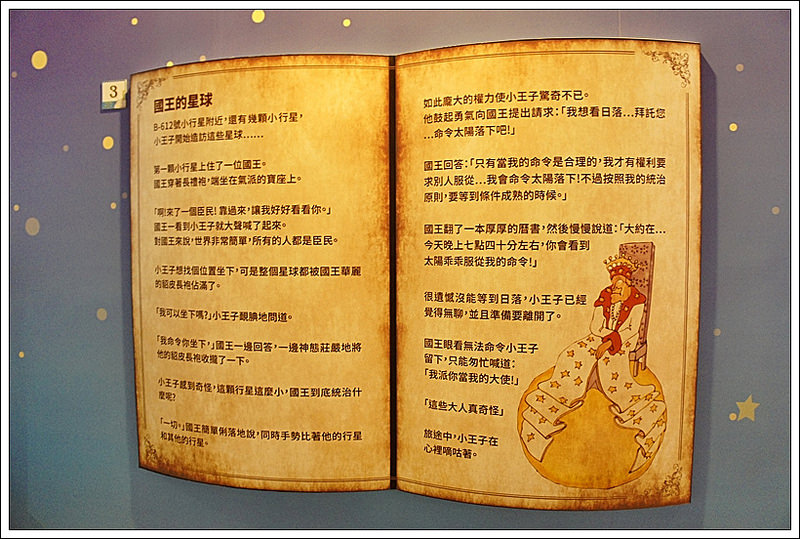 3
國王的星球
B-612號小行星附近，還有幾顆小行星，
小王子開始造訪這些星球……
第一顆小行星上住了一位國王。
國王穿著長禮袍，端坐在氣派的寶座上。
「啊!來了一個臣民! 靠過來，讓我好好看看你。」
國王一看到小王子就大聲喊了起來。
對國王來說，世界非常簡單，所有的人都是臣民。
小王子想找個位置坐下，可是整個星球都被國王華麗
的貂皮長袍佔滿了。
「我可以坐下嗎?」小王子靦腆地問道。
「我命令你坐下，」國王一邊回答，一邊神態莊嚴地將
他的貂皮長袍收攏了一下。
小王子感到奇怪，這顆行星這麼小，國王到底統治什
麼呢?
「一切。」國王簡單俐落地說，同時手勢比著他的行星
和其他的行星。
如此龐大的權力使小王子驚奇不已。
他鼓起勇氣向國王提出請求：「我想看日落…拜託您
…命令太陽落下吧!」
國王回答：「只有當我的命令是合理的，我才有權利要
求別人服從…我會命令太陽落下!不過按照我的統治
原則，要等到條件成熟的時候。」
國王翻了一本厚厚的曆書，然後慢慢說道：「大約在…
今天晚上七點四十分左右，你會看到
太陽乖乖服從我的命令!」
很遺憾沒能等到日落，小王子已經
覺得無聊，並且準備要離開了。
國王眼看無法命令小王子
留下，只能匆忙喊道：
「我派你當我的大使!」
「這些大人真奇怪」
旅途中，小王子在
心裡嘀咕著。